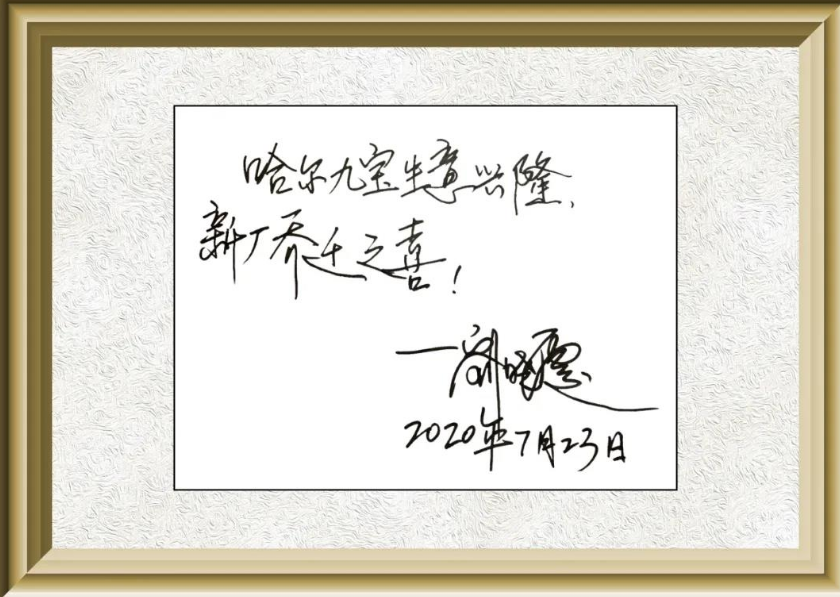 哈尔九宝生意兴隆、
新厂乔迁之喜！
2020年7月23日